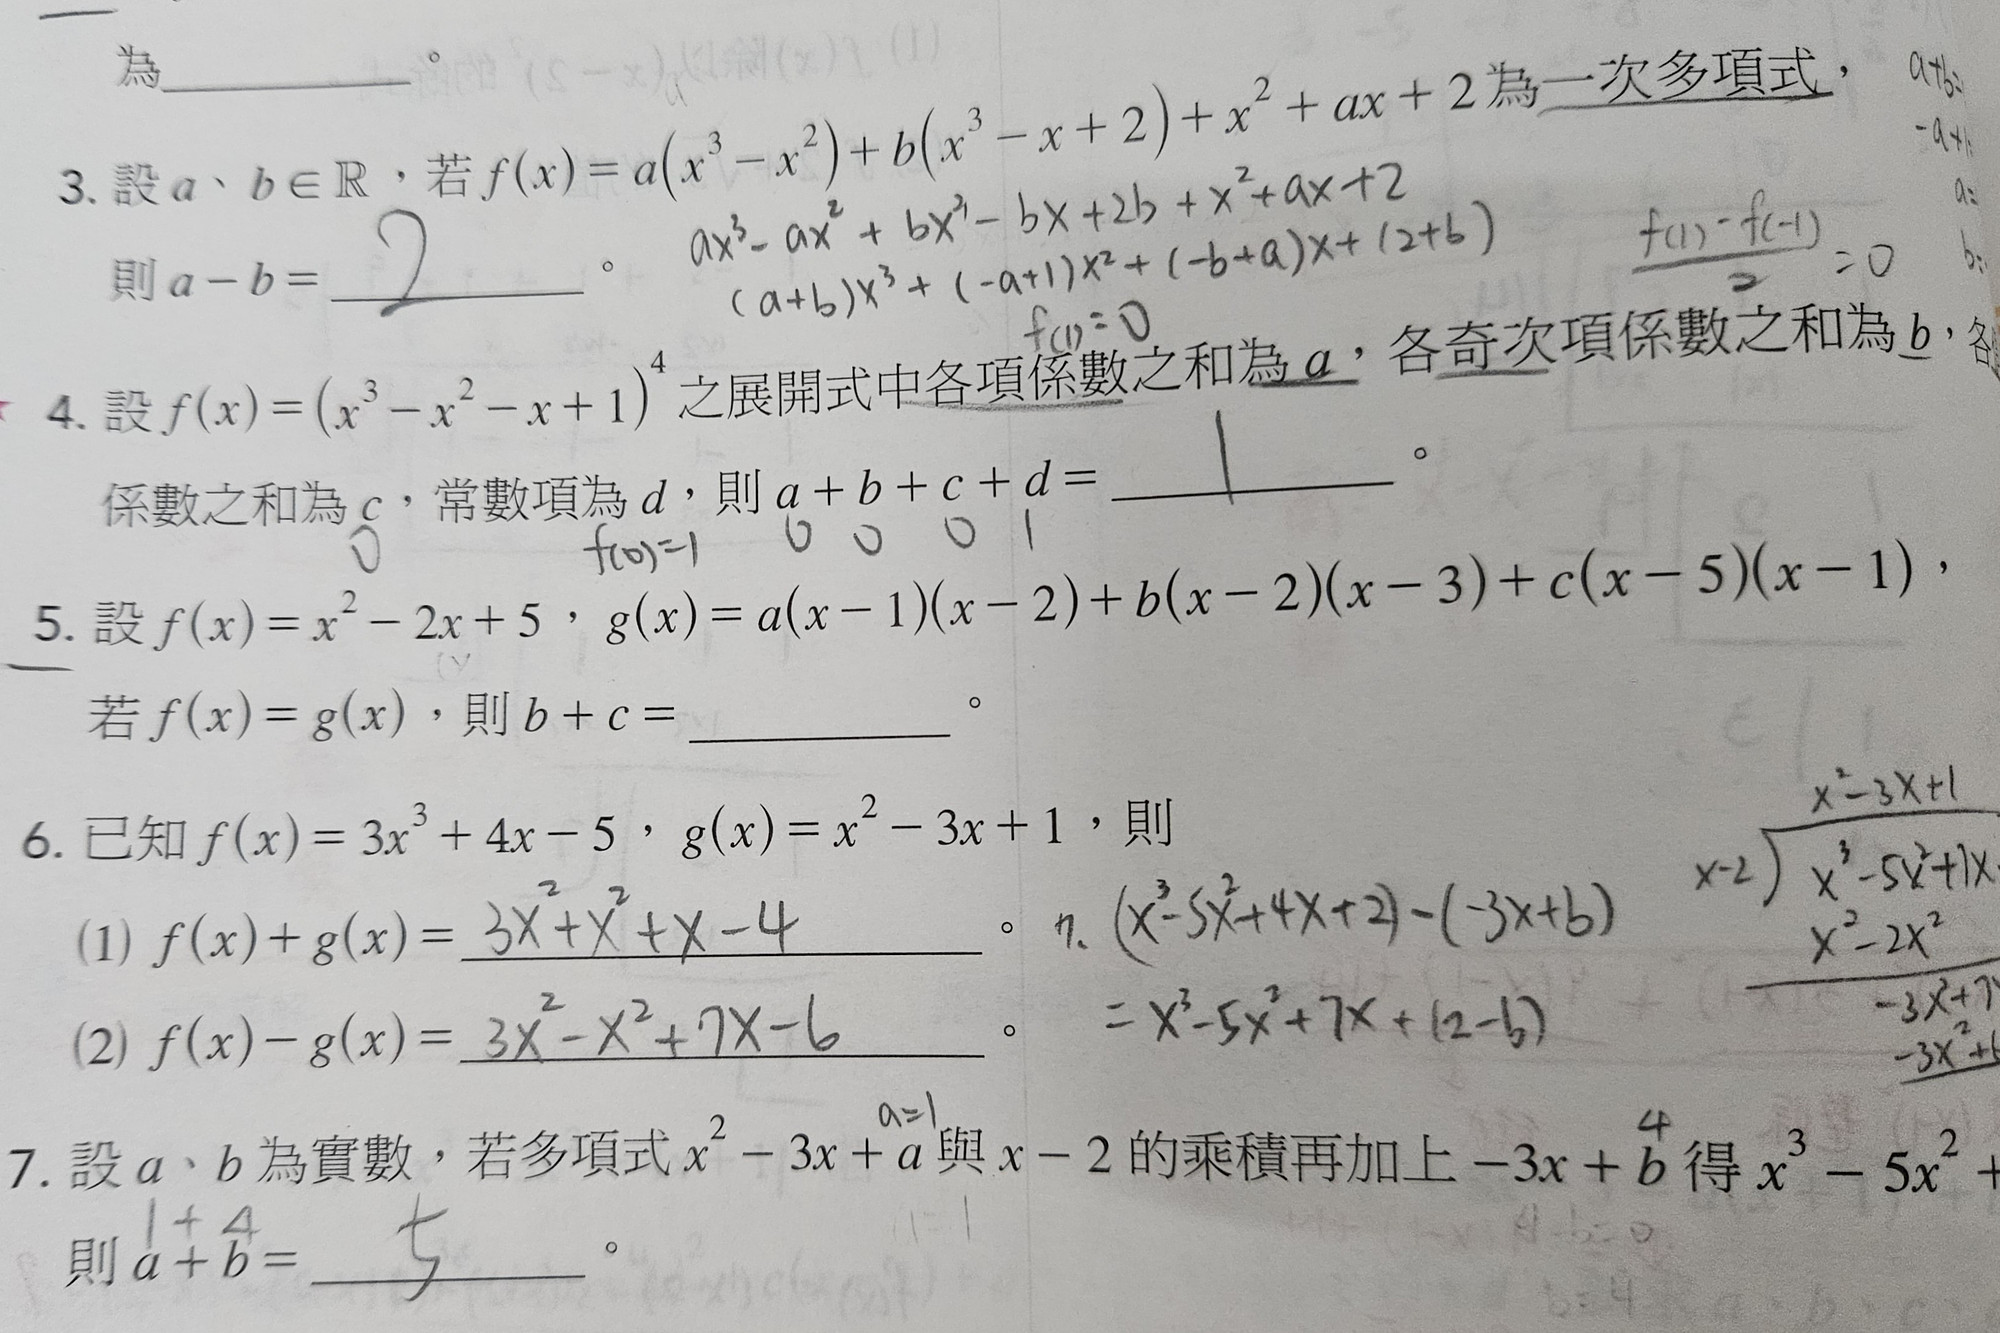 為________。
3. 設 a、b∈ℝ,若 f(x)=a(x³−x²)+b(x³−x+2)+x²+ax+2 為一次多項式, a+b=
−a+1=
ax³−ax²+bx³−bx+2b+x²+ax+2 a=
則 a−b= 2 。 (a+b)x³+(−a+1)x²+(−b+a)x+(2+b) b=
f(1)−f(−1)/2 =0
f(1)=0
4. 設 f(x)=(x³−x²−x+1)⁴ 之展開式中各項係數之和為 a,各奇次項係數之和為 b,各
係數之和為 c,常數項為 d,則 a+b+c+d= 1 。
0 f(0)=1 0 0 0 1
5. 設 f(x)=x²−2x+5,g(x)=a(x−1)(x−2)+b(x−2)(x−3)+c(x−5)(x−1),
若 f(x)=g(x),則 b+c=________。
6. 已知 f(x)=3x³+4x−5,g(x)=x²−3x+1,則
(1) f(x)+g(x)= 3x²+x²+x−4 。
(2) f(x)−g(x)= 3x²−x²+7x−6 。
7. (x³−5x²+4x+2)−(−3x+b)
=x³−5x²+7x+(2−b)
x²−3x+1
x−2)x³−5x²+7x
x²−2x²
−3x²+7
−3x²+6
a=1 4
7. 設 a、b 為實數,若多項式 x²−3x+a 與 x−2 的乘積再加上 −3x+b 得 x³−5x²+
1+4
則 a+b= 5 。